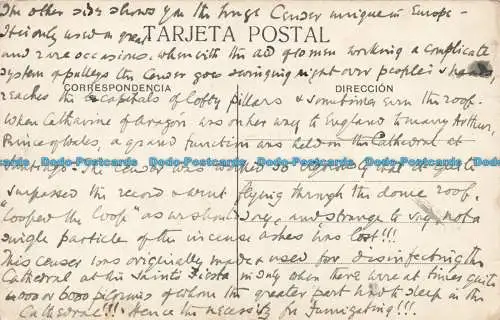 The other side shows you the huge Censer unique in Europe -
It is only used on great
TARJETA POSTAL
and rare occasions. when with the aid of 10 men working a complicate
system of pulleys the Censer goes swinging right over people's heads,
CORRESPONDENCIA
DIRECCIÓN
reaches the capitals of lofty pillars & sometimes even the roof.
When Catharine of Aragon was on her way to England to marry Arthur,
Prince of Wales, a grand function was held in the Cathedral at
Dodo-Postcards Dodo-Postcards Dodo-Postcards Dodo-Postcards
Santiago. The Censer was worked so vigorously that it quite
surpassed the record & went flying through the dome roof.
"Looped the Loop" as we should say, and strange to say not a
single particle of the incense ashes was lost!!!
This censer was originally made & used for disinfecting the
Cathedral at the Saints Fiesta in July when there were at times quite
4,000 or 6000 pilgrims of whom the greater part had to sleep in the
Cathedral!!! Hence the necessity for fumigating!!!.